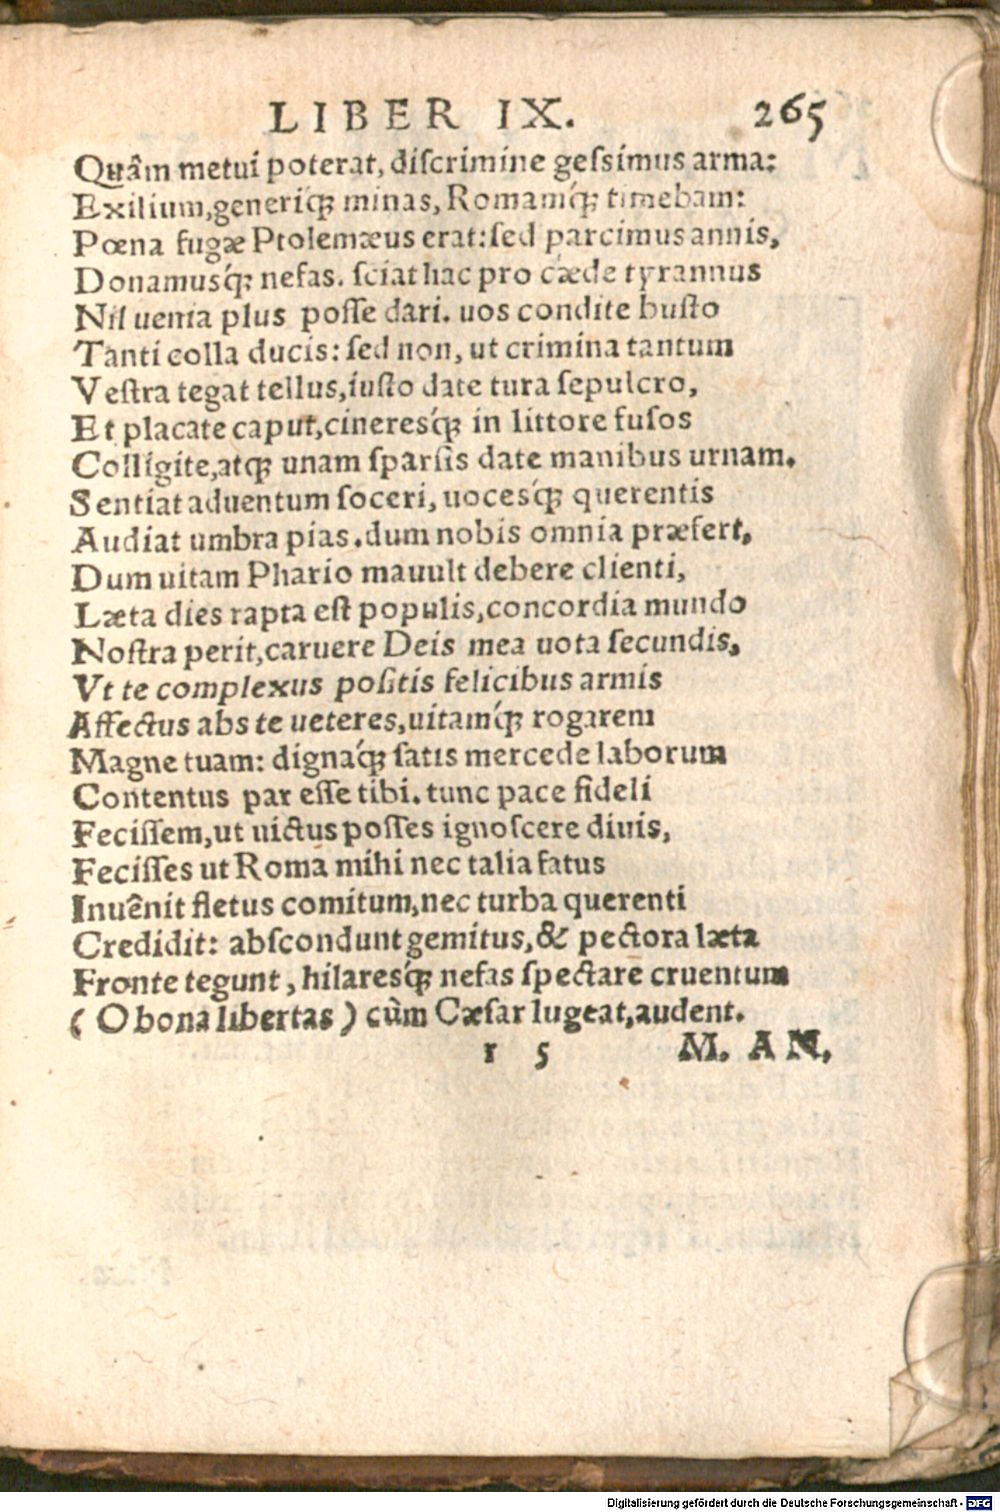 LIBER IX. 265
Quâm metui poterat, discrimine gessimus arma:
Exilium,generiq́; minas, Romamq́; timebam:
Pœna fugæ Ptolemæus erat:sed parcimus annis,
Donamusq́; nefas. sciat hac pro cæde tyrannus
Nil uenia plus posse dari. uos condite busto
Tanti colla ducis: sed non, ut crimina tantum
Vestra tegat tellus,iusto date tura sepulcro,
Et placate caput,cineresq́; in littore fusos
Colligite,atq; unam sparsis date manibus urnam.
Sentiat aduentum soceri, uocesq́; querentis
Audiat umbra pias.dum nobis omnia præfert,
Dum uitam Phario mauult debere clienti,
Læta dies rapta est populis,concordia mundo
Nostra perit,caruere Deis mea uota secundis,
Vt te complexus positis felicibus armis
Affectus abs te ueteres,uitamq́; rogarem
Magne tuam: dignaq́; satis mercede laborum
Contentus par esse tibi. tunc pace fideli
Fecissem,ut uictus posses ignoscere diuis,
Fecisses ut Roma mihi nec talia fatus
Inuênit fletus comitum,nec turba querenti
Credidit: abscondunt gemitus,& pectora læta
Fronte tegunt, hilaresq́; nefas spectare cruentum
(O bona libertas) cùm Cæsar lugeat,audent.
r 5 M. AN,
Digitalisierung gefördert durch die Deutsche Forschungsgemeinschaft - DFG